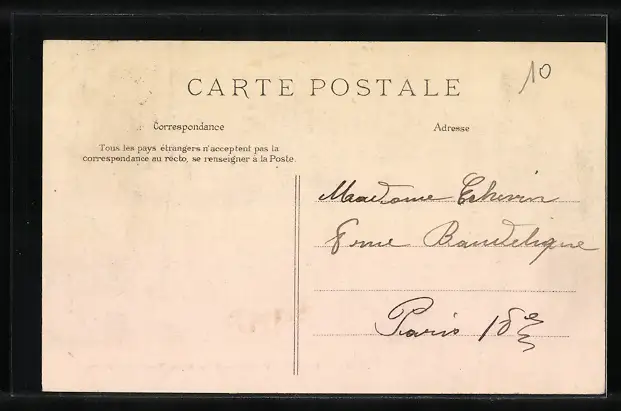 10
CARTE POSTALE
Correspondance
Adresse
Tous les pays étrangers n'acceptent pas la
correspondance au recto, se renseigner à la Poste.
Madame
Paris 18e